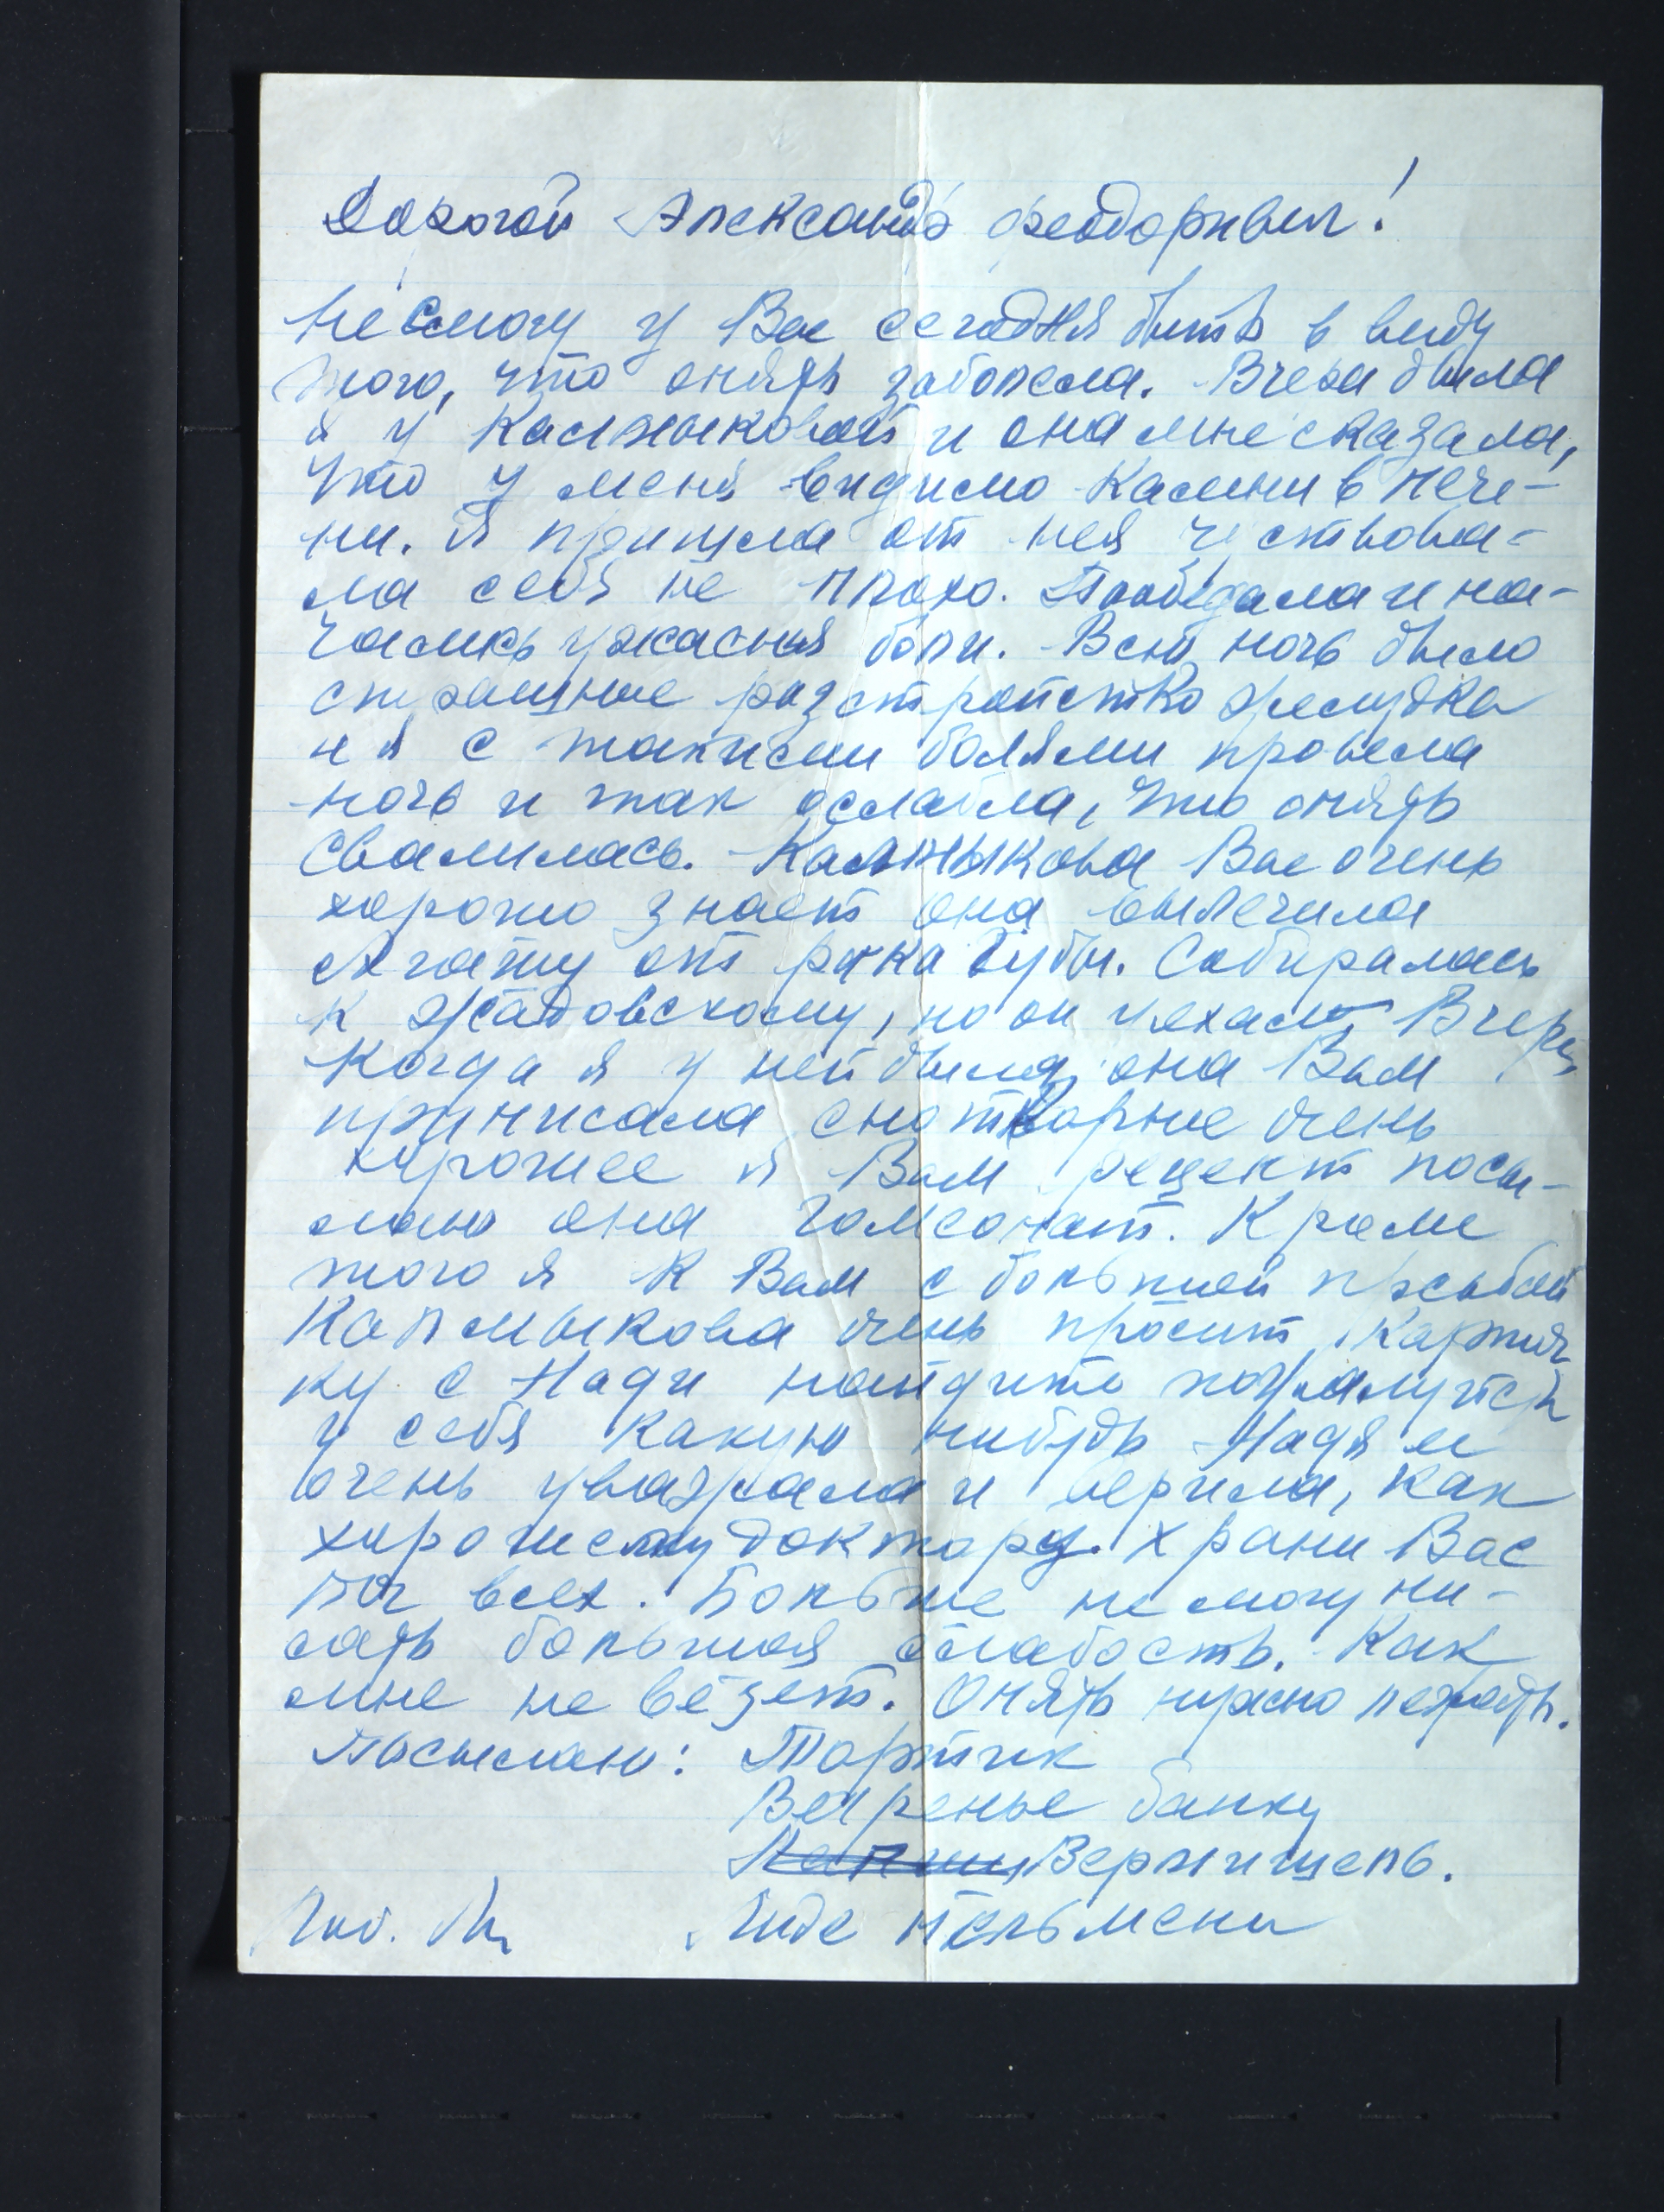 Дорогой Александр Феодорович!
Не смогу у Вас сегодня быть в виду
того, что опять заболела. Вчера была
я у Калмыковой и она мне сказала,
что у меня видимо камни в пече-
ни. Я пришла от нея чуствова-
ла себя не плохо. Пообедала и на-
чались ужасныя боли. Всю ночь было
страшное разстройство желудка
и я с такими болями провела
ночь и так ослабла, что опять
свалилась. Калмыкова Вас очень
хорошо знает она вылечила
Агату от рака губы. Собиралась
к Жадовскому, но он уехал. Вчера
когда я у ней была, она Вам
прописала снотворное очень
хорошее я Вам рецепт посы-
лаю она гомеопат. Кроме
того я к Вам с большой просьбой
Калмыкова очень просит карточ-
ку с Нади найдите пожалуйста
у себя какую нибудь Надя ее
очень уважала и верила, как
хорошему доктору. Храни Вас
Бог всех. Больше не могу пи-
сать большая слабость. Как
мне не везет. Опять нужно лежать.
Посылаю: Тортик
Варенье банку
Вермишель.
Пельмени